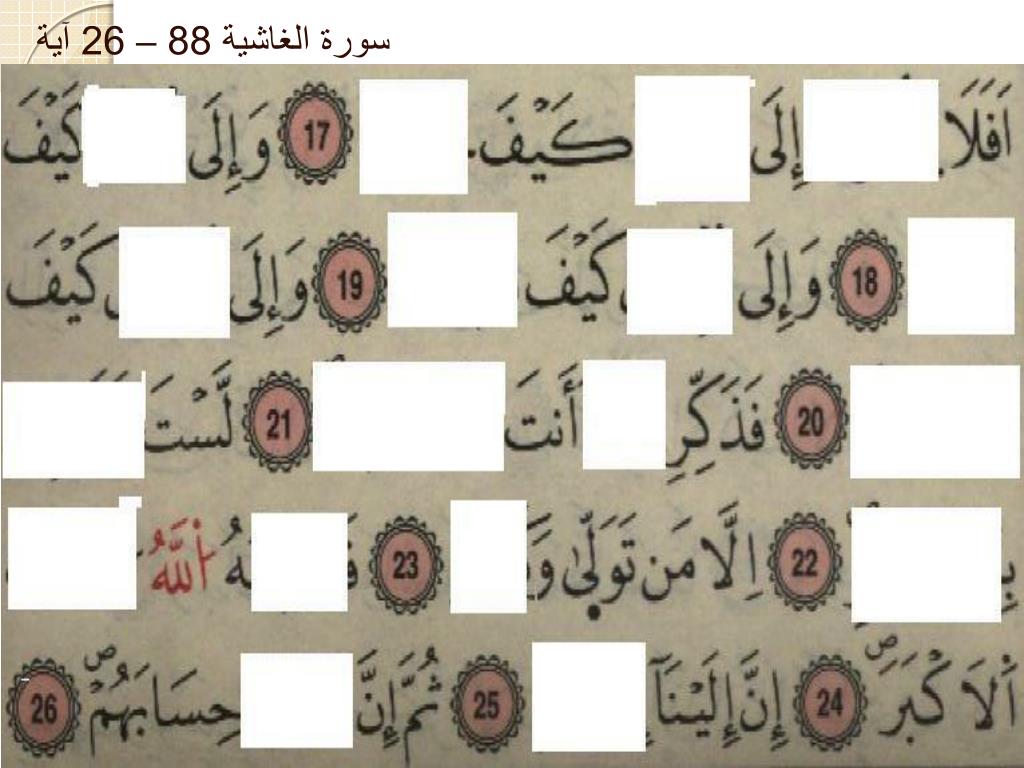 سورة الغاشية 88 – 26 آية
اَفَلَا إِلَى كَيْفَ 17 وَإِلَى كَيْفَ
18 وَإِلَى كَيْفَ 19 وَإِلَى كَيْفَ
20 فَذَكِّرِ أَنتَ 21 لَّسْتَ
22 اِلَّا مَن تَوَلّٰى وَ 23 أللَّهُ
ألَاكْبَرَ ص 24 إِنَّ إِلَيْنَآ 25 ثُمَّ إِنَّ حِسَابَهُمْ ص 26